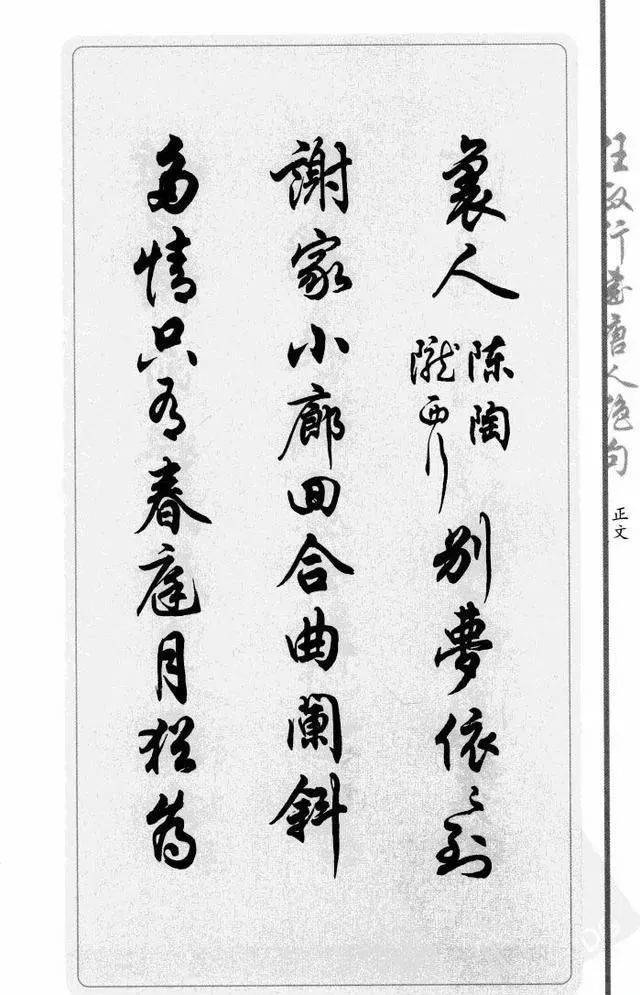 任政行書唐人絕句
正文
裏人
陳陶
隴西行
別夢依〻到
謝家小廊回合曲闌斜
多情只有春庭月猶為